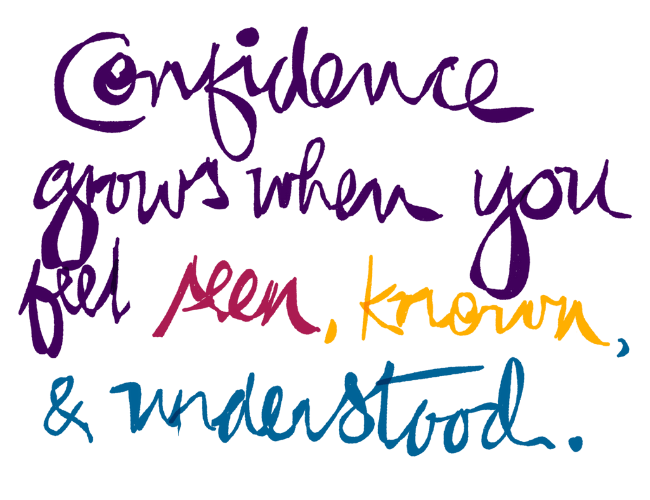 Confidence
grows when you
feel seen, known,
& understood.